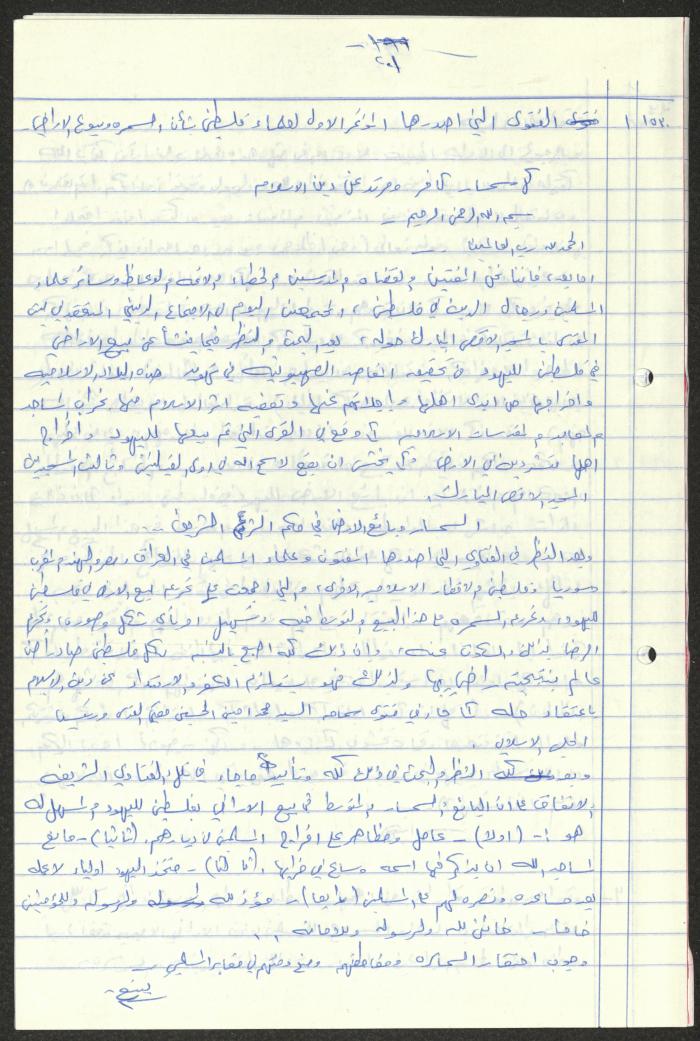 ١٩٩
٢٠١
١٥٢٠ ا فتوى الفتوى التي اصدرها المؤتمر الاول لعلماء فلسطين بشأن السمسره وبيوع الاراضي
كل سمسار كافر ومرتد عن دين الاسلام
بسم الله الرحمن الرحيم
الحمد لله رب العالمين
اما بعد، فاننا نحن المفتين والقضاه والمدرسين والخطباء والائمه والوعاظ وسائر علماء
المسلمين ورجال الدين في فلسطين، المجتمعين اليوم في الاجتماع الديني المنعقد في بيت
المقدس بالمسجد الاقصى المبارك حوله، بعد البحث والنظر فيما ينشأ عن بيع الاراضي
في فلسطين لليهود من تحقيق المقاصد الصهيونيه في تهويد هذه البلاد الاسلاميه
واخراجها من ايدي اهلها واجلائهم عنها وتعفيه اثر الاسلام منها بخراب المساجد
والمعابد والمقدسات الاسلاميه كما وقع في القرى التي تم بيعها لليهود واخراج
اهلها متشردين في الارض وكما يخشى ان يقع لا سمح الله في اولى القبلتين وثالث المسجدين
المسجد الاقصى المبارك.
السمسار وبائع الارض في حكم الشرع الشريف
وبعد النظر في الفتاوي التي اصدرها المفتون وعلماء المسلمين في العراق ومصر والهند والمغرب
وسوريا وفلسطين والاقطار الاسلاميه الاخرى، والتي اجمعت على تحريم بيع الارض في فلسطين
لليهود، وتحريم السمسره على هذا البيع والتوسط فيه وتسهيل امره بأي شكل وصوره، وتحريم
الرضا بذلك والسكوت عنه، وان ذلك كله اصبح بالنسبه لكل فلسطيني صادراً من
عالم بنتيجته راضٍ بها ولذلك فهو يستلزم الكفر والارتداد عن دين الاسلام
باعتقاد حله كما جاء في فتوى سماحه السيد محمد امين الحسيني مفتي القدس ورئيس
المجلس الاسلامي.
وبعد كله النظر والبحث في ذلك كله وتأييد ما جاء في تلك الفتاوي الشريفه
والاتفاق على ان البائع والسمسار والمتوسط في بيع الاراضي بفلسطين لليهود والمسهل له
هو :- (اولا) - عامل ومظاهر على اخراج المسلمين من ديارهم، (ثانيا) - مانع
لمساجد الله ان يذكر فيها اسمه وساع في خرابها، (ثالثا) - متخذ اليهود اولياء لان عمله
يعد مساعده ونصره لهم على المسلمين (رابعا) - مؤذ لله ولرسوله ولرسوله وللمؤمنين
خامسا - خائن لله ولرسوله وللامانه . .
وجوب احتقار السماسره ومقاطعتهم ومنع دفنهم في مقابر المسلمين
يتبع